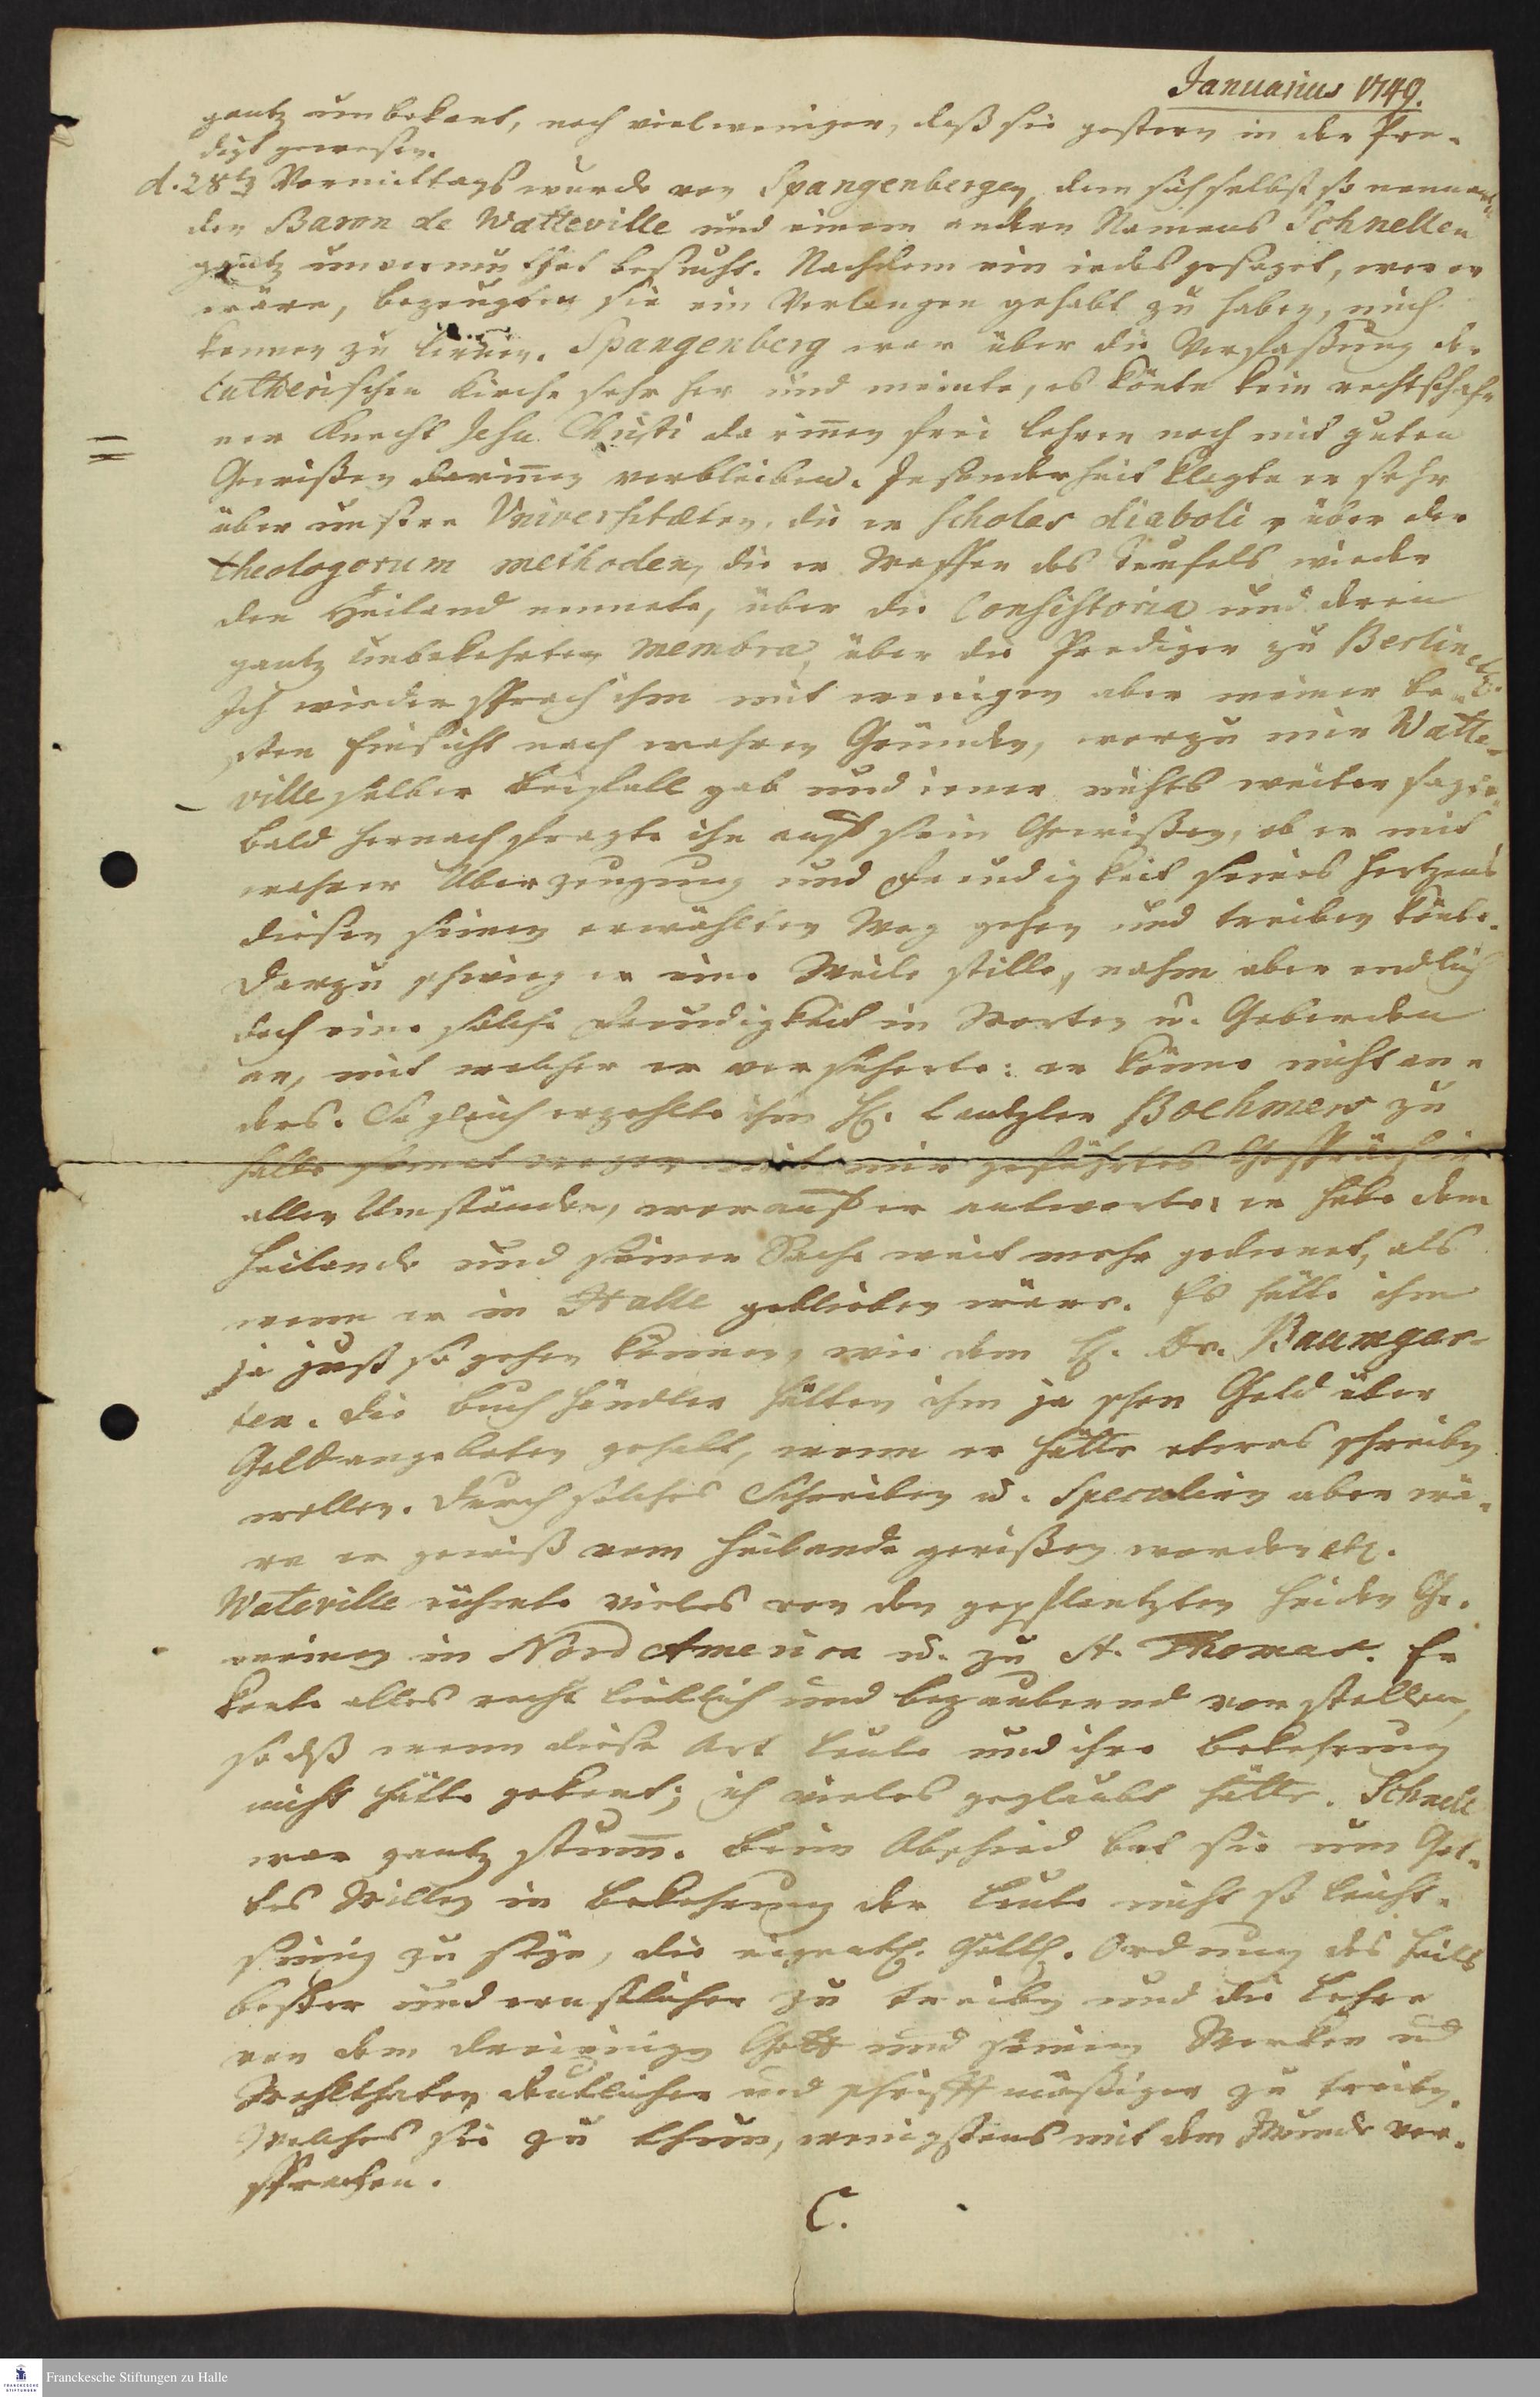 Januarius 1749.
gantz unbekant, noch viel weniger, daß sie gestern in der Pre-
digt gewesen.
d. 28ten Vormittags wurde von Spangenbergen, dem sich selbst so nennen-
den Baron de Watteville und einem andern Namens Schnellen
gantz unvermuthet besucht. Nachdem ein iedes gesaget, wer er
wäre, bezeugten sie ein Verlangen gehabt zu haben, mich
kennen zu lernen. Spangenberg war über die Verfaßung der
Lutherischen Kirche sehr her und meinte, es könte kein rechtschafe-
ner Knecht Jesu Christi darinnen frei lehren noch mit guten
Gewißen darinnen verbleiben. Insonderheit klagte er sehr
über unsere Universitæten, die er Scholas diaboli, über der
theologorum methoden, die er Waffen des Teufels wieder
den Heiland nennete, über die Consistoria und deren
gantz unbekehrten membra, über die Prediger zu Berlin etc.
Ich wiedersprach ihm mit wenigen aber meiner be-
sten Einsicht nach wahren Gründen, worzu mir Watte-
ville selber Beifall gab und iener nichts weiter sagte.
Bald hernach fragte ihn auf sein Gewißen, ob er mit
wahrer Überzeugung und Freudigkeit seines Hertzens
diesen seinen erwählten Weg gehen und treiben könte.
Darzu schwieg er eine Weile stille, nahm aber endlich
doch eine solche Freudigkeit in Worten u. Geberden
an, mit welcher er versicherte: er könne nicht an-
ders. So gleich erzehlte ihm H. Cantzler Boehmers zu
Halle seinet wegen mit mir geführtes Gespräch in
allen Umständen, worauf er antworte: er habe dem
Heilande und seiner Sache weit mehr gedienet, als
wenn er in Halle geblieben wäre. Es hätte ihm
ja just so gehen können, wie dem H. Dr. Baumgar-
ten. Die Buchhändler hätten ihm ja schon Geld über
Geld angeboten gehabt, wenn er hätte etwas schreiben
wollen. Durch solches Schreiben u. Speculiren aber wä-
re er gewiß vom Heilande gerißen worden etc.
Wateville rühmte vieles von den gepflantzten Heiden Ge-
meinen in Nord America u. zu St. Thomas. Er
konte alles recht lieblich und bezaubernd vorstellen,
so daß wenn diese Art Leute und ihre Bekehrung
nicht hätte gekent; ich vieles geglaubt hätte. Schnell
war gantz stumm. Beim Abschied bat sie um Got-
tes Willen in Bekehrung der Leute nicht so leicht-
sinnig zu seyn, die eigentl. Göttl. Ordnung des Heils
beßer und ernstlicher zu treiben und die Lehre
von dem dreieinigen Gott und seinen Werken und
Wohlthaten deutlicher und schrifftmäßiger zu treiben.
Welches sie zu thun, wenigstens mit dem Munde ver-
sprachen.
C.
Franckesche Stiftungen zu Halle